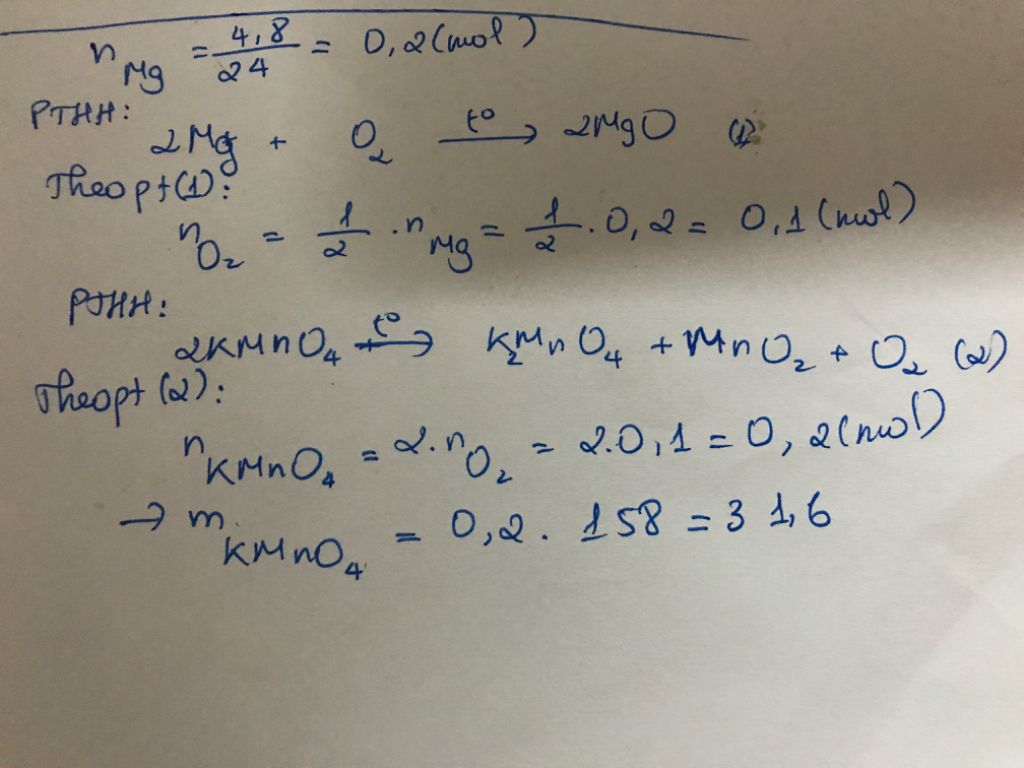 n Mg = 4,8/24 = 0,2 (mol)
PTHH:
2Mg + O₂ t° → 2MgO (1)
Theo pt (1):
n O₂ = 1/2 . n Mg = 1/2 . 0,2 = 0,1 (mol)
PTHH:
2KMnO₄ t° → K₂MnO₄ + MnO₂ + O₂ (2)
Theo pt (2):
n KMnO₄ = 2. n O₂ = 2.0,1 = 0,2 (mol)
→ m KMnO₄ = 0,2 . 158 = 31,6